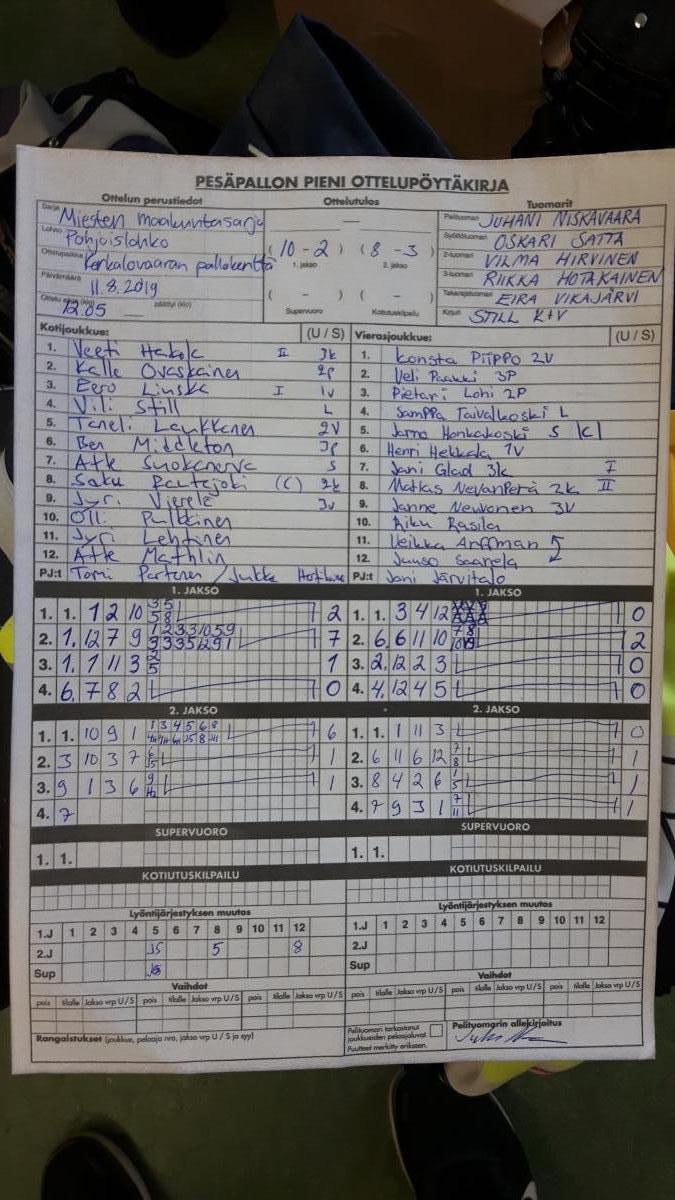 PESÄPALLON PIENI OTTELUPÖYTÄKIRJA
Ottelun perustiedot
Ottelutulos
Tuomarit
Sarja Miesten maakuntasarja
Lohko Pohjoislohko
Ottelupaikka Kerkalovaaran pallokenttä
Päivämäärä 11.8.2019
12.05 päättyi (klo)
(10 - 2) (8 - 3)
1. jakso 2. jakso
( - ) ( - )
Supervuoro Kotiutuskilpailu
Pelituomari JUHANI NISKAVAARA
Syöttötuomari OSKARI SATTA
2-tuomari VILMA HIRVINEN
3-tuomari RIIKKA HOTAKAINEN
Takarajatuomari EIRA VIKAJÄRVI
Kirjuri STILL K+V
Kotijoukkue: (U / S)
1. Veeti Hakola II 3k
2. Kalle Ovaskainen 2p
3. Eero Linska I 1v
4. Vili Still L
5. Taneli Laukkanen 2V
6. Ben Middleton 3p
7. Atte Suokonerva S
8. Saku Rautajoki (C) 2k
9. Jyri Vierelä 3v
10. Olli Pulkkinen
11. Jyri Lehtinen
12. Atte Mathlin
PJ:t Tomi Partanen / Jukka
Vierasjoukkue: (U / S)
1. Konsta PiiPPO 2V
2. Veli Paakki 3P
3. Pietari Lohi 2P
4. SamPPa Taivalkoski L
5. Jarno Honkakoski S
6. Henri Hekkala 1V
7. Jani Glad 3k I
8. Matias NevanPerä 2k II
9. Janne Neuvonen 3V
10. Riku Rasila
11. Veikka Anffman
12. Juuso Saarela
PJ:t Jani Järvitalo
1. JAKSO
1. 1. 1 2 10 35 58 2
2. 1. 12 7 9 7
3. 1. 1 11 3 2 5 1
4. 6. 7 8 2 0
1. JAKSO
1. 1. 3 4 12 0
2. 6. 6 11 10 7 8 2
3. 2. 12 2 3 0
4. 4. 12 4 5 0
2. JAKSO
1. 1. 10 9 1 1 3 4 5 6 8 6
2. 3 10 3 7 1
3. 9 1 3 6 1
4. 7
2. JAKSO
1. 1. 1 11 3 0
2. 6 11 6 12 7 8 1
3. 8 4 2 6 1 5 1
4. 7 9 3 1 7 11 1
SUPERVUORO
1. 1.
SUPERVUORO
1. 1.
KOTIUTUSKILPAILU
KOTIUTUSKILPAILU
Lyöntijärjestyksen muutos
1.J 1 2 3 4 5 6 7 8 9 10 11 12
2.J J5 5 8
Sup
Lyöntijärjestyksen muutos
1.J 1 2 3 4 5 6 7 8 9 10 11 12
2.J
Sup
Vaihdot
pois tilalle Jakso vrp U/S pois tilalle Jakso vrp U/S pois tilalle Jakso vrp U/S
Vaihdot
pois tilalle Jakso vrp U/S pois tilalle Jakso vrp U/S pois tilalle Jakso vrp U/S
Rangaistukset (joukkue, pelaaja nro, jakso vrp U / S ja syy)
Pelituomari tarkastanut joukkueiden pelaajaluvat
Puutteet merkitty erikseen.
Pelituomarin allekirjoitus